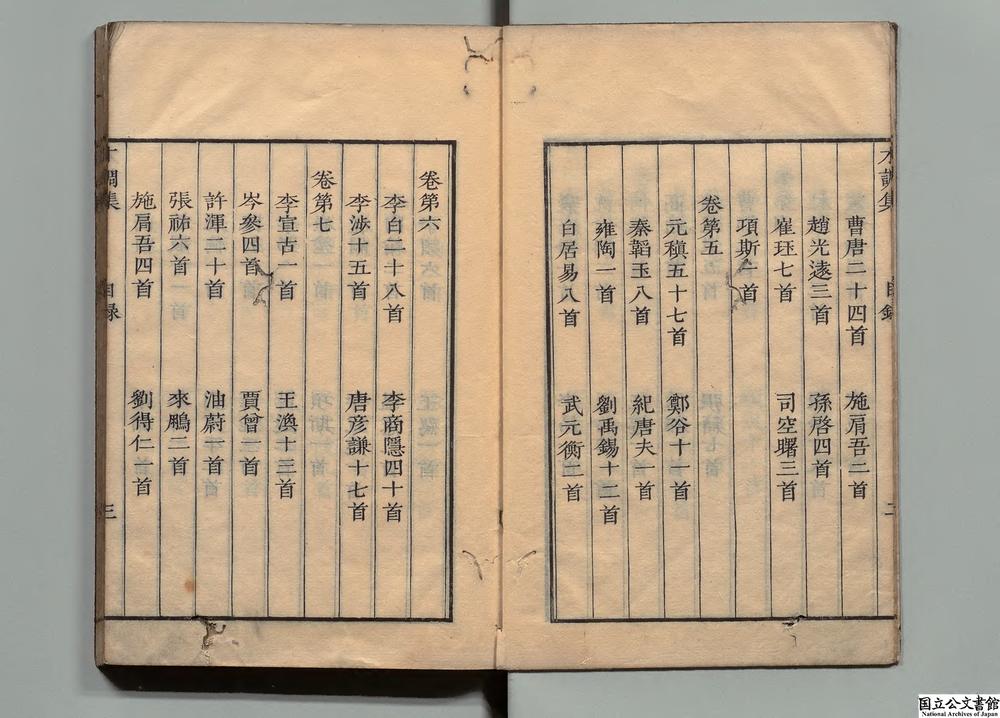 才調集 目錄 二
曹唐二十四首 施肩吾二首
趙光遠三首 孫啓四首
崔珏七首 司空曙三首
項斯一首
卷第五
元稹五十七首 鄭谷十一首
秦韜玉八首 紀唐夫一首
雍陶一首 劉禹錫十二首
白居易八首 武元衡二首
卷第六
李白二十八首 李商隱四十首
李涉十五首 唐彥謙十七首
卷第七
李宣古一首 王渙十三首
岑參四首 賈曾一首
許渾二十首 油蔚一首
張祜六首 來鵬二首
施肩吾四首 劉得仁二首
才調集 目錄 三
国立公文書館
National Archives of Japan